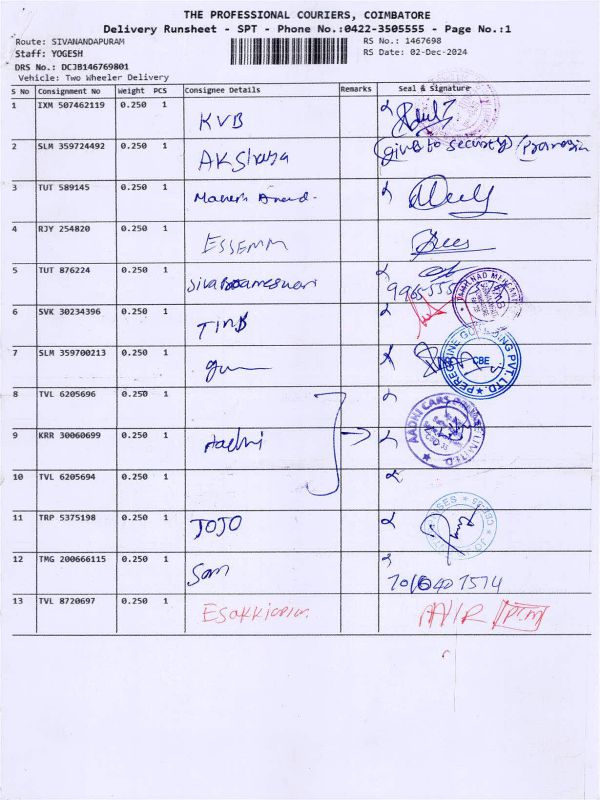 THE PROFESSIONAL COURIERS, COIMBATORE
Delivery Runsheet - SPT - Phone No.:0422-3505555 - Page No.:1
Route: SIVANANDAPURAM RS No.: 1467698
Staff: YOGESH RS Date: 02-Dec-2024
DRS No.: DCJB146769801
Vehicle: Two Wheeler Delivery
S No Consignment No Weight PCS Consignee Details Remarks Seal & Signature
1 IXM 507462119 0.250 1 KVB
2 SLM 359724492 0.250 1 AKShaya (give to security)
3 TUT 589145 0.250 1 Mahesh Anand.
4 RJY 254820 0.250 1 ESSEMM
5 TUT 876224 0.250 1
6 SVK 30234396 0.250 1 TIMB
7 SLM 359700213 0.250 1 PEREGRINE GUARDING PVT. LTD. CBE
8 TVL 6205696 0.250 1
9 KRR 30060699 0.250 1 Aadhi AADHI CARS PRIVATE LIMITED
10 TVL 6205694 0.250 1
11 TRP 5375198 0.250 1 JOJO
12 TMG 200666115 0.250 1 Sam
13 TVL 8720697 0.250 1